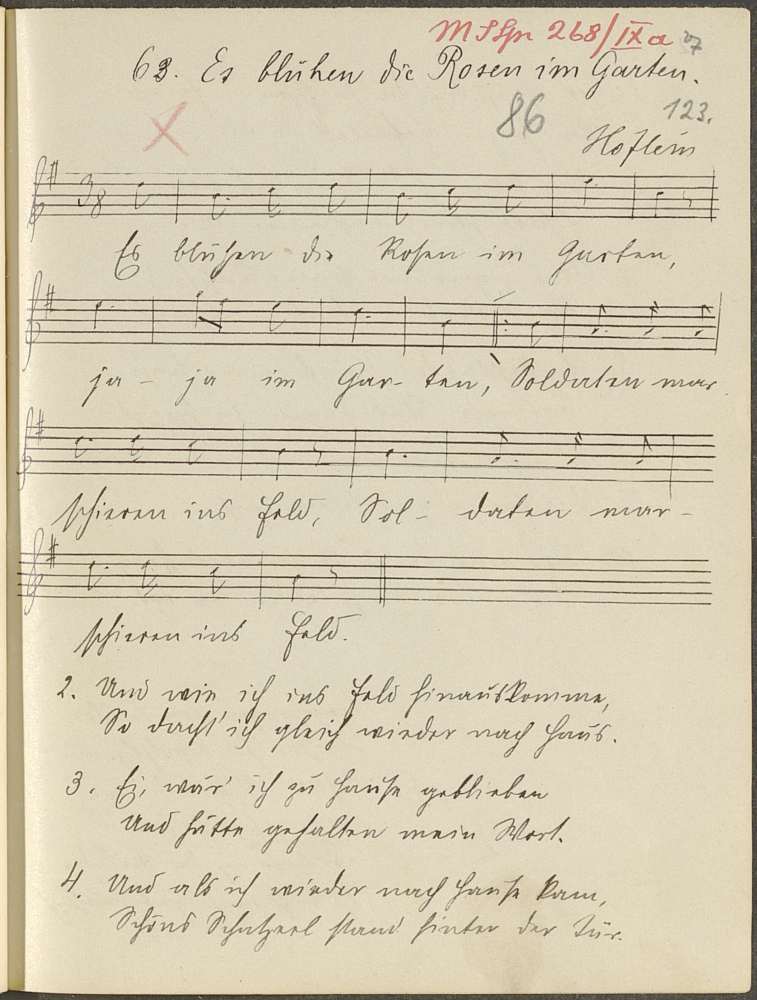 MSSpr 268/IXa 07
63. Es blühen die Rosen im Garten.
86 123.
Hoflein
3/8
Es blühen die Rosen im Garten,
ja - ja im Gar- ten, Soldaten mar
schieren ins Feld, Sol- daten mar-
schieren ins Feld.
2. Und wie ich ins Feld hinauskomme,
So dacht' ich gleich wieder nach Haus.
3. Ei, wär' ich zu Hause geblieben
Und hätte gehalten mein Wort.
4. Und als ich wieder nach Hause kam,
Schöns Schatzerl stand hinter der Tür.